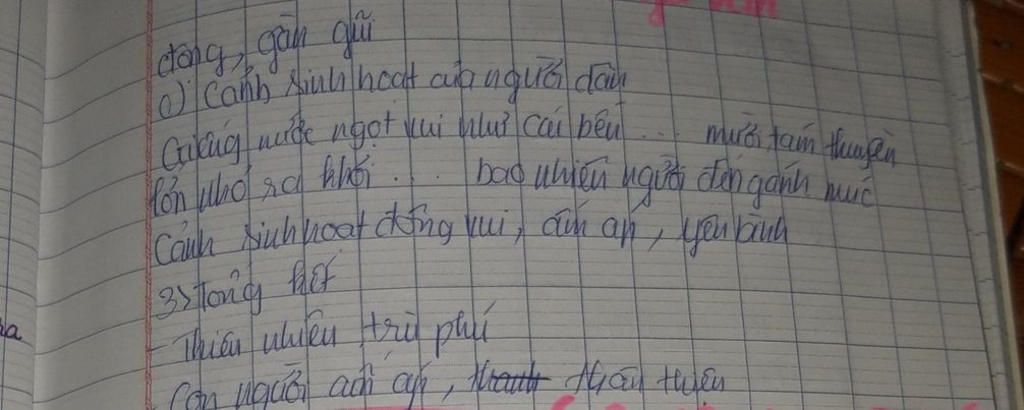 động, gần gũi
c) Cảnh sinh hoạt của người dân
Giếng nước ngọt vui như cái bến ... mười tám thuyền
lớn nhỏ ra khơi ... bao nhiêu người đến gánh múc
Cảnh sinh hoạt đông vui, ấm áp, yên bình
3> Tổng kết
- Thiên nhiên trù phú
Con người ấm áp, thân thiện